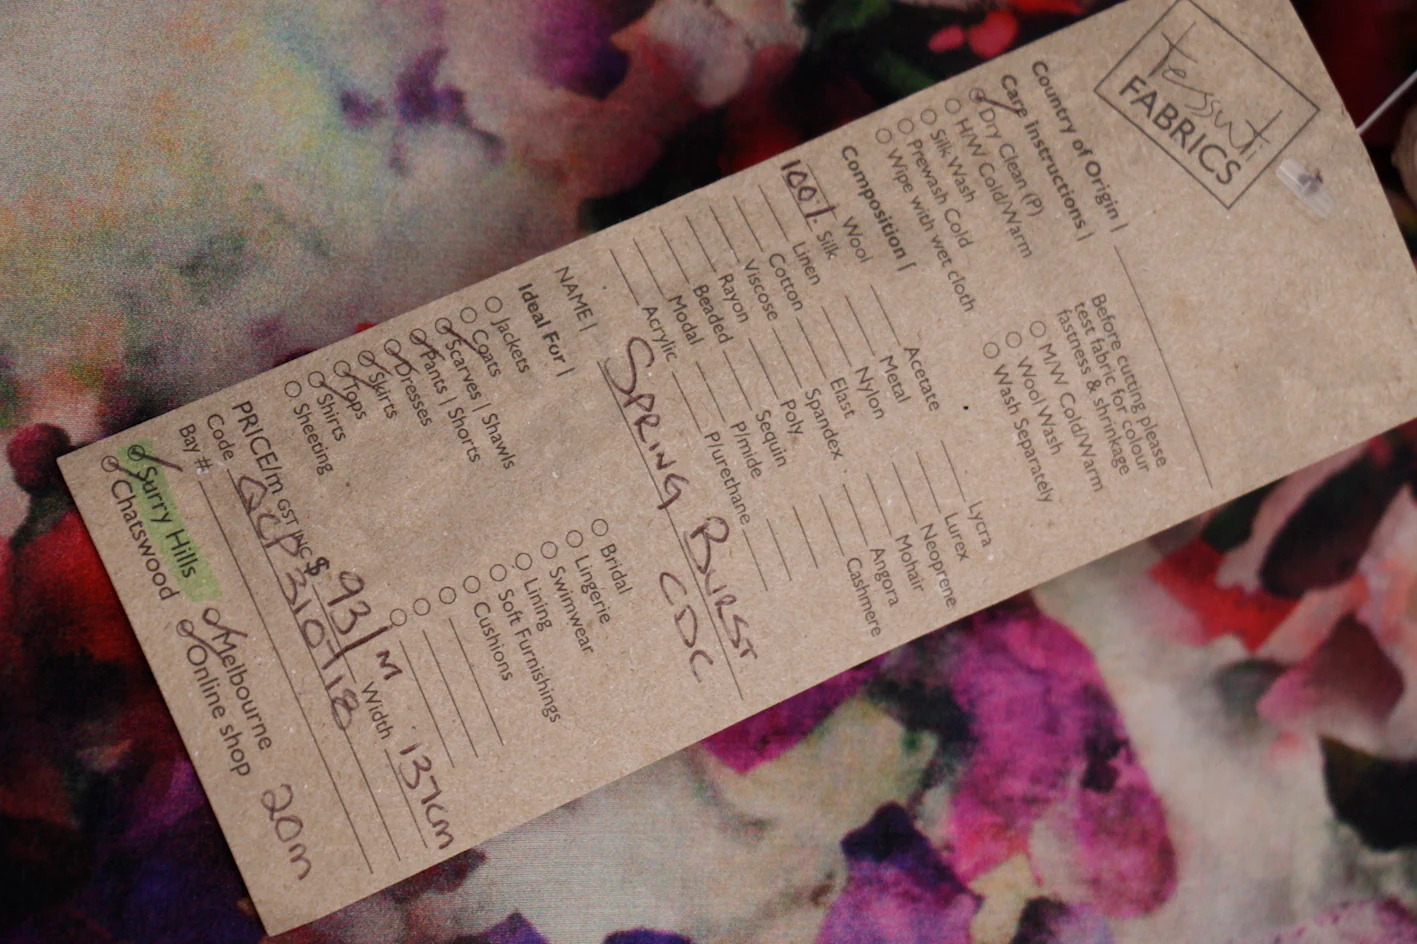 tessuti
FABRICS
Country of Origin |
Care Instructions |
Dry Clean (P)
H/W Cold/Warm
Silk Wash
Prewash Cold
Wipe with wet cloth
Before cutting please
test fabric for colour
fastness & shrinkage
M/W Cold/Warm
Wool Wash
Wash Separately
Composition |
Wool
100% Silk
Linen
Cotton
Viscose
Rayon
Beaded
Modal
Acrylic
Acetate
Metal
Nylon
Elast
Spandex
Poly
Sequin
P/mide
P/urethane
Lycra
Lurex
Neoprene
Mohair
Angora
Cashmere
NAME | SPRING BURST
CDC
Ideal For |
Jackets
Coats
Scarves | Shawls
Pants | Shorts
Dresses
Skirts
Tops
Shirts
Sheeting
Bridal
Lingerie
Swimwear
Lining
Soft Furnishings
Cushions
PRICE/m GST INC $ 93/M Width 137cm
Code
Bay #
Surry Hills
Chatswood
Melbourne
Online shop
20m